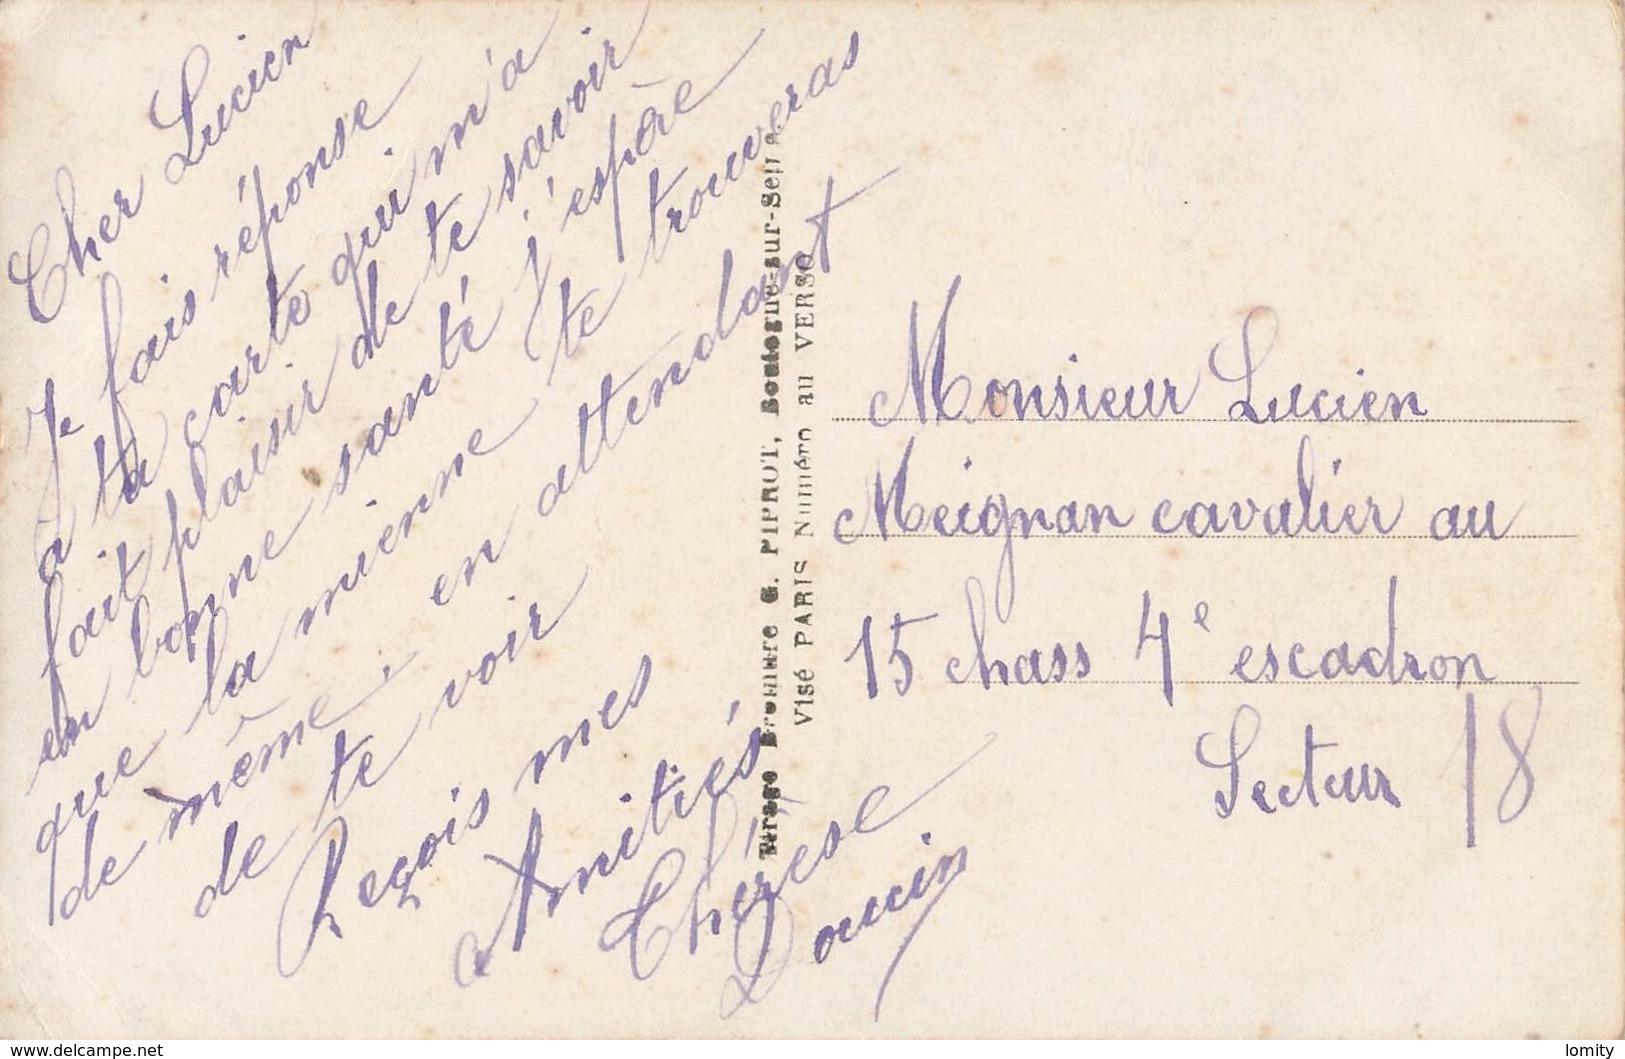 Cher Lucien
Je fais réponse
à ta carte qui m'a
fait plaisir de te savoir
en bonne santé j'espère
que la mienne te trouveras
de même, en attendant
de te voir
Reçois mes
Amitiés
Thérèse
Douin
Tirage Bromure G. PIPROT, Boulogne-sur-Seine
Visé PARIS Numéro au VERSO
Monsieur Lucien
Meignan cavalier au
15 chass 4e escadron
Secteur 18
delcampe.net
lomity